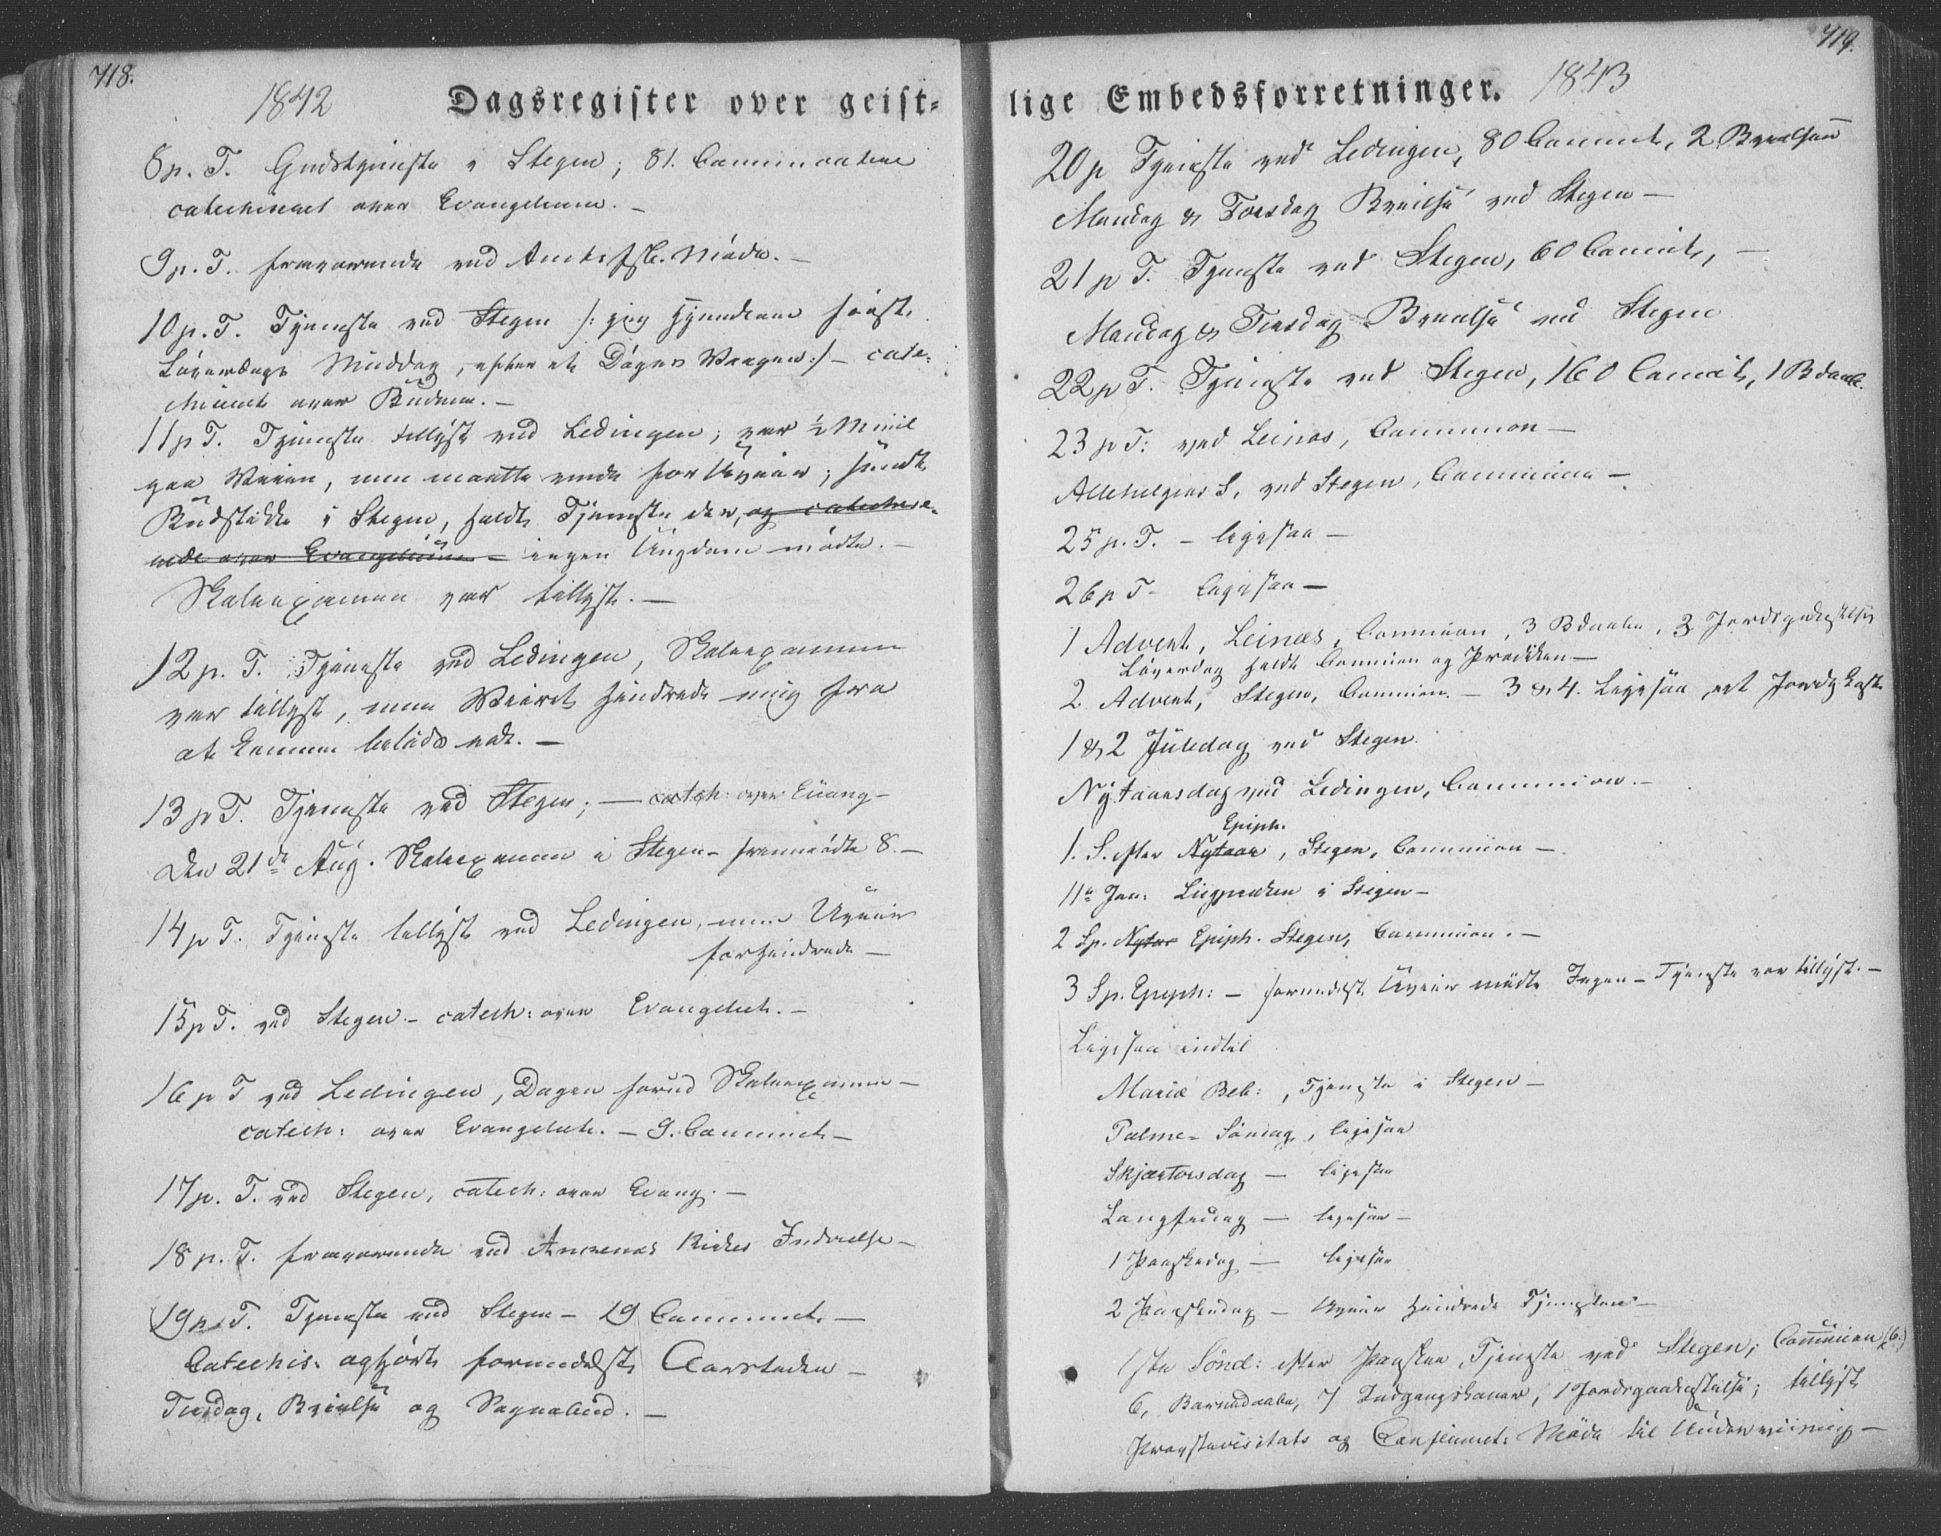 718.
1842 Dagsregister over geist-
8 p. T. Gudstjeneste i Stegen; 81. Communicantere
catechiseret over Evangelium. –
9 p. T. fraværende ved Amts Møde. –
10 p. T. Tjeneste ved Stegen /: jeg hjemkom først
Løverdags Middag, efter et Døgns :/ – cate-
chiseret over Budene. –
11 p T. Tjeneste tillyst ved Lødingen; var ½ Miil
paa Veien, men maatte vende for Uveir; sendte
Budstikke i Stegen, holdt Tjeneste der, og catechise-
rede over Evangelium – ingen Ungdom mødte. –
Skoleexamen var tillyst. –
12 p. T. Tjeneste ved Lødingen, Skoleexamen
var tillyst, men Veiret hindrede mig fra
at komme
13 p T. Tjeneste ved Stegen; – catech: over Evang –
Den 21de Aug. Skoleexamen i Stegen – fremmødte 8. –
14 p T. Tjeneste tillyst ved Lødingen, men Uveir
forhindrede –
15 p T. ved Stegen – catech: over Evangeliet. –
16 p T ved Lødingen, Dagen forud Skoleexamen –
catech: over Evangeliet. – 9. Communict. –
17 p. T. ved Stegen, catech: over Evang. –
18 p. T. fraværende ved Kirkes Indvielse –
19 p. T. Tjeneste ved Stegen – 19 Communict. –
Catechis: ophørt formedelst Aarstiden –
Tirsdag, Bryielse og Sognebud. –
719.
lige Embedsforretninger. 1843
20 p Tjeneste ved Lødingen, 80 Communict, 2 Bryielser
Mandag & Torsdag Bryielse ved Stegen –
21 p T. Tjeneste ved Stegen, 60 Communict, –
Mandag & Tirsdag Bryielse ved Stegen
22 p T. Tjeneste ved Stegen, 160 Communict, 1 Bdaab.
23 p T: ved Leines, Communion –
Allehelgens S. ved Stegen, Communion –
25 p. T. – ligesaa –
26 p T – ligesaa –
1 Advent, Leinæs, Communion, 3 Bdaabe, 3 Jordspaakastelser
Løverdag holdt Communion og Prædiken –
2 Advent, Stegen, Communion. – 3 & 4. ligesaa, et Jordpkast.
1 & 2 Juledag ved Stegen.
Nytaarsdag ved Lødingen, Communion. –
1. S. efter Nytaar Epiph. , Stegen, Communion –
11te Jan: Liigprædiken i Stegen –
2 S p. Nytar Epiph. Stegen, Communion. –
3 S p. Epiph: – formedelst Uveir mødte Ingen – Tjeneste var tillyst. –
Ligesaa indtil
Mariæ Beb: , Tjeneste i Stegen –
Palme-Søndag, ligesaa
Skjærtorsdag – ligesaa
Langfredag – ligesaa –
1 Paaskedag – ligesaa
2 Paaskedag – Uveir hindrede Tjenesten –
1ste Sønd: efter Paaske, Tjeneste ved Stegen, Communion
6, Barnedaabe, 7 Indgangskoner, 1 Jordspaakastelse; tillyst
Provstevisitats og Confirmat: Møde til Underviisning –